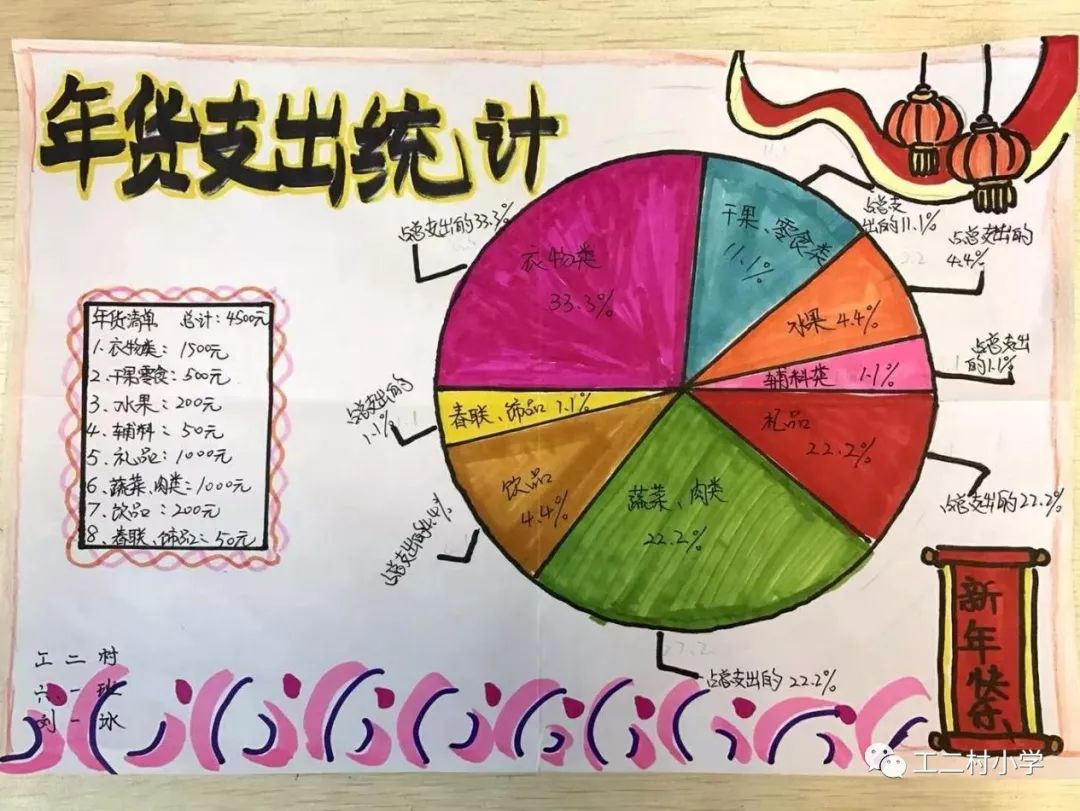 年货支出统计
年货清单 总计：4500元
1.衣物类：1500元
2.干果零食：500元
3.水果：200元
4.辅料：50元
5.礼品：1000元
6.蔬菜、肉类：1000元
7.饮品：200元
8.春联、饰品：50元
占总支出的33.3%
衣物类
33.3%
干果、零食类
11.1%
占总支
出的11.1%
水果 4.4%
占总支出的
4.4%
辅料类 1.1%
占总支出
的1.1%
礼品
22.2%
占总支出的22.2%
蔬菜、肉类
22.2%
占总支出的22.2%
饮品
4.4%
占总支出的4.4%
春联、饰品 1.1%
占总支出的
1.1%
新年快乐
工二村
六·一班
刘一冰
工二村小学